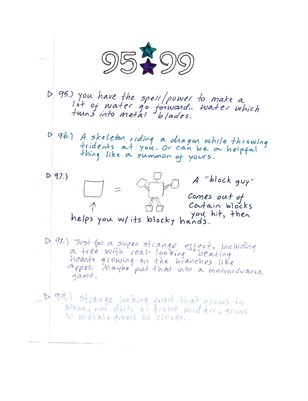 95 99
95.) you have the spell/power to make a
lot of water go forward.. water which
turns into metal blades.
96.) A skeleton riding a dragon while throwing
tridents at you. Or can be a helpful
thing like a summon of yours.
97.)
=
A "block guy"
Comes out of
certain blocks
you hit, then
helps you w/its blocky hands.
98.) Just for a super strange effect, including
a tree with real-looking beating
hearts growing on the branches like
apples. Maybe put that into a metroidvania
game.
99.) Strange looking fruit that grows in
stone, not dirt, or grows mid air, grows
on metal, grows on clouds.